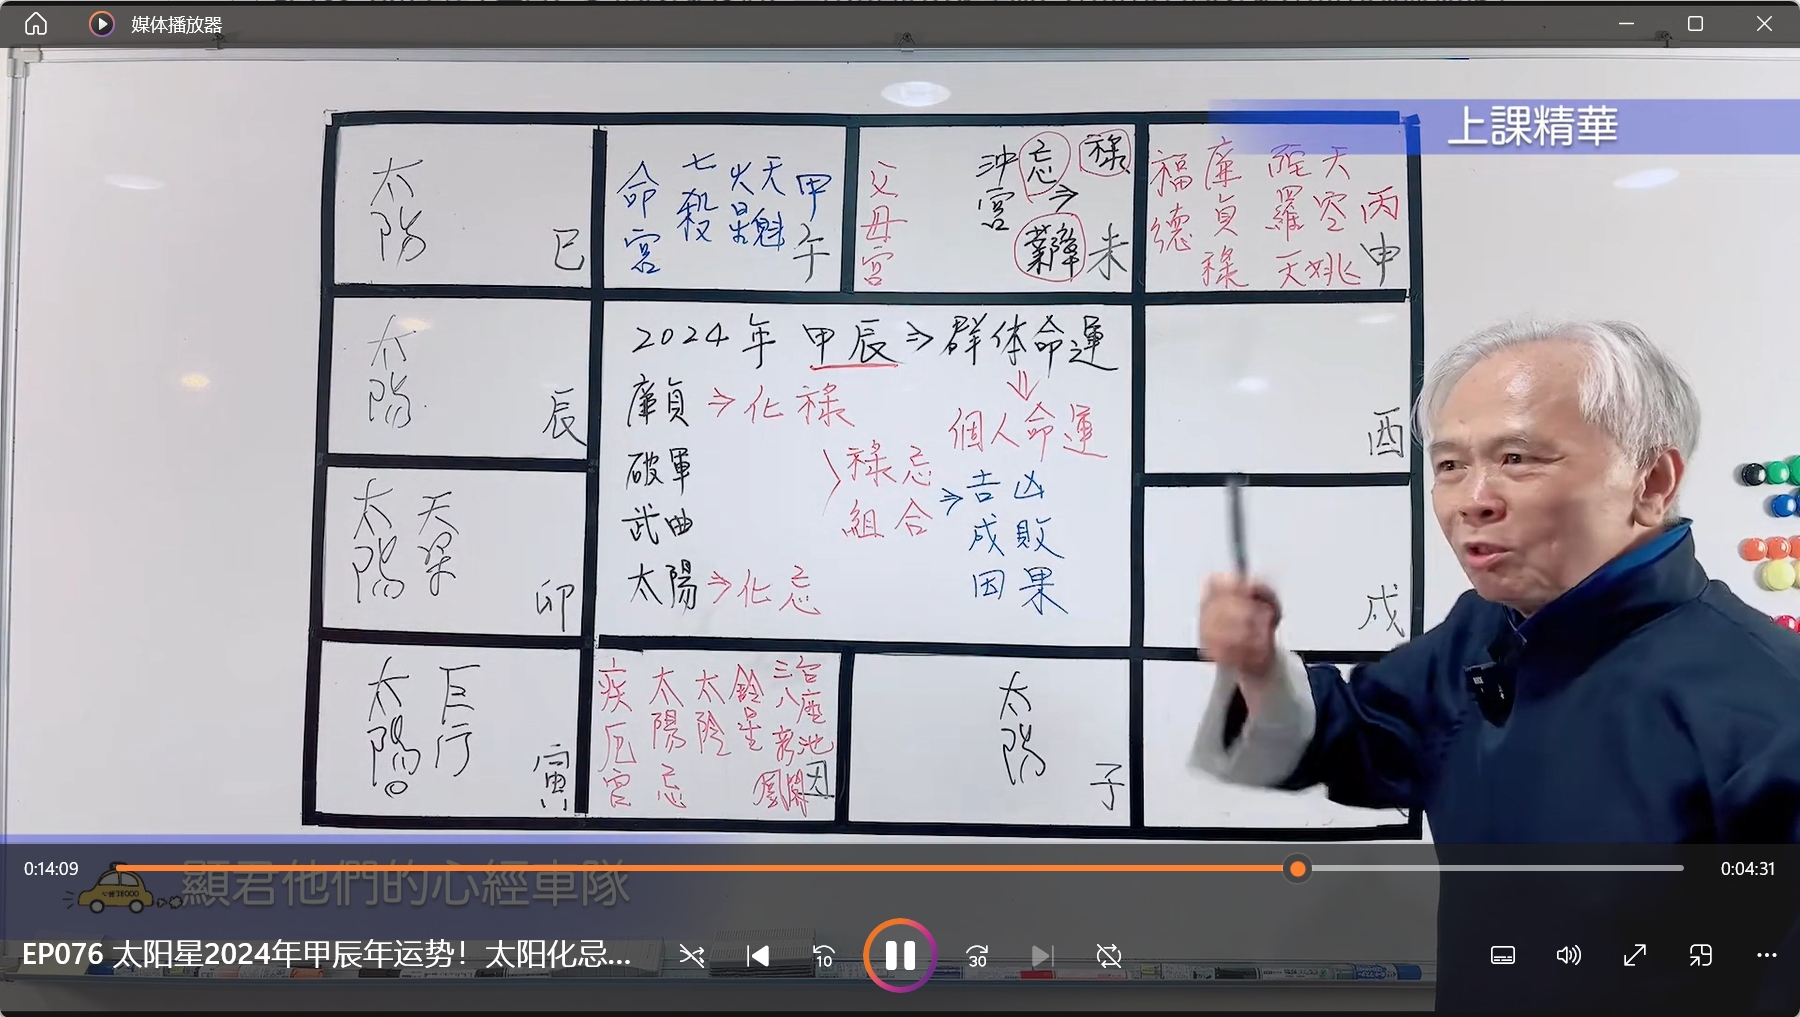 媒体播放器
上課精華
太陽
巳
命宮
七殺
火星
天魁
甲午
父母宮
沖宮
忌⇒
祿
業障
未
福德
廉貞祿
陀羅
天空
天姚
丙申
太陽
辰
2024年 甲辰⇒群体命運
⇓
廉貞⇒化祿
個人命運
破軍
祿忌
組合
⇒吉凶
武曲
成敗
太陽⇒化忌
因果
酉
太陽
天梁
卯
戌
太陽
巨门
寅
疾厄宮
太陽忌
太陰
鈴星
三台
八座
丑
太陽
子
0:14:09
0:04:31
顯君他們的心經車隊
EP076 太阳星2024年甲辰年运势！太阳化忌...
10
30